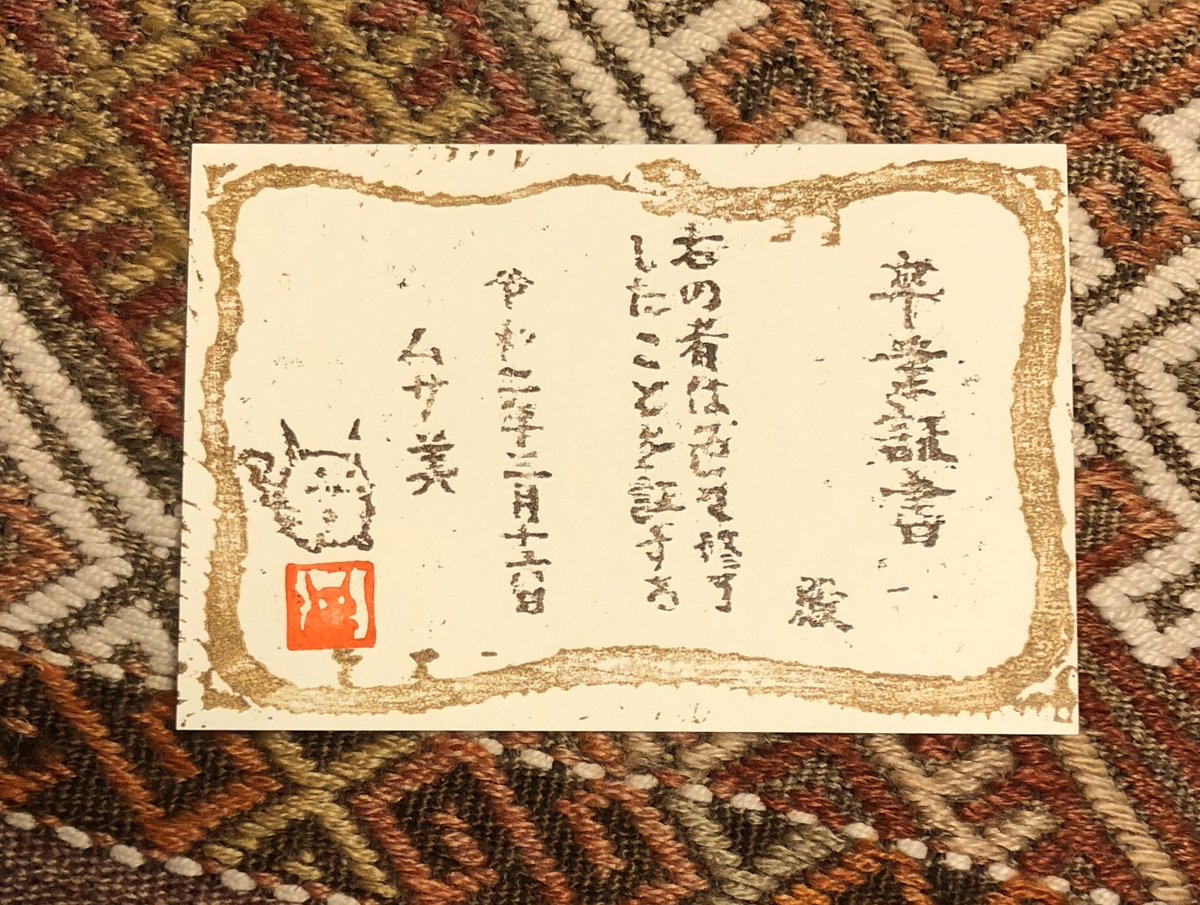 卒業証書
殿
右の者は修了
したことを証する
令和二年三月十六日
ムサ美